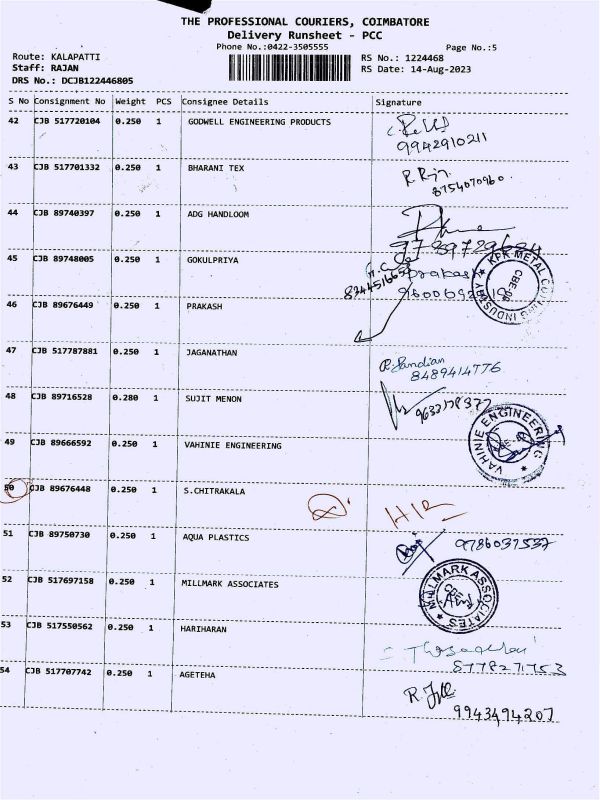 THE PROFESSIONAL COURIERS, COIMBATORE
Delivery Runsheet - PCC
Phone No.:0422-3505555 Page No.:5
Route: KALAPATTI RS No.: 1224468
Staff: RAJAN RS Date: 14-Aug-2023
DRS No.: DCJB122446805
S No Consignment No Weight PCS Consignee Details Signature
42 CJB 517720104 0.250 1 GODWELL ENGINEERING PRODUCTS
9942910211
43 CJB 517701332 0.250 1 BHARANI TEX
8754070960
44 CJB 89740397 0.250 1 ADG HANDLOOM
45 CJB 89748005 0.250 1 GOKULPRIYA
Prakash
KPK METAL INDUSTRY
CBE
46 CJB 89676449 0.250 1 PRAKASH
47 CJB 517787881 0.250 1 JAGANATHAN
R. Pandian
8489414776
48 CJB 89716528 0.280 1 SUJIT MENON
9633178377
49 CJB 89666592 0.250 1 VAHINIE ENGINEERING
VAHINIE ENGINEERING
50 CJB 89676448 0.250 1 S.CHITRAKALA
51 CJB 89750730 0.250 1 AQUA PLASTICS
9786037537
52 CJB 517697158 0.250 1 MILLMARK ASSOCIATES
MILLMARK ASSOCIATES
53 CJB 517550562 0.250 1 HARIHARAN
8778271753
54 CJB 517707742 0.250 1 AGETEHA
9943494207